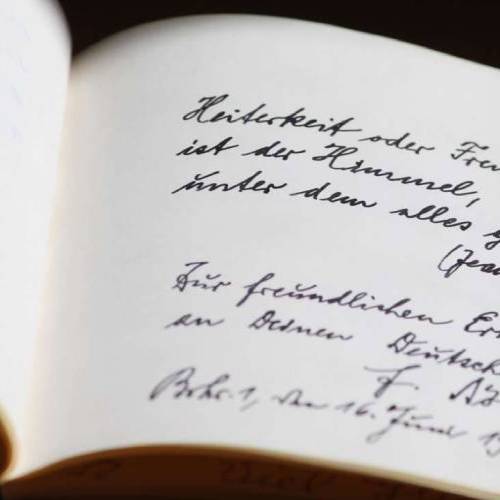 Heiterkeit oder Freu
ist der Himmel,
unter dem alles g
(Jean
Zur freundlichen Eri
an Deinen Deutsch
F.
den 16. Juni 19